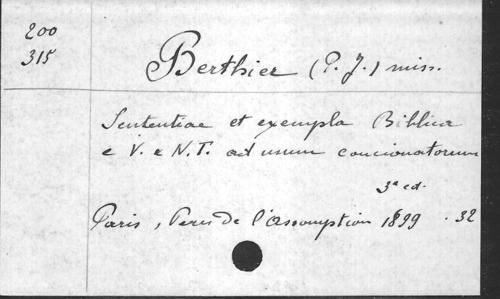 200
315
Berthier (P. J.) miss.
Sententiae et exempla Biblica
e V. e N.T. ad usum concionatorum
3ª ed.
Paris, Peres de l'Assomption 1899 . 32